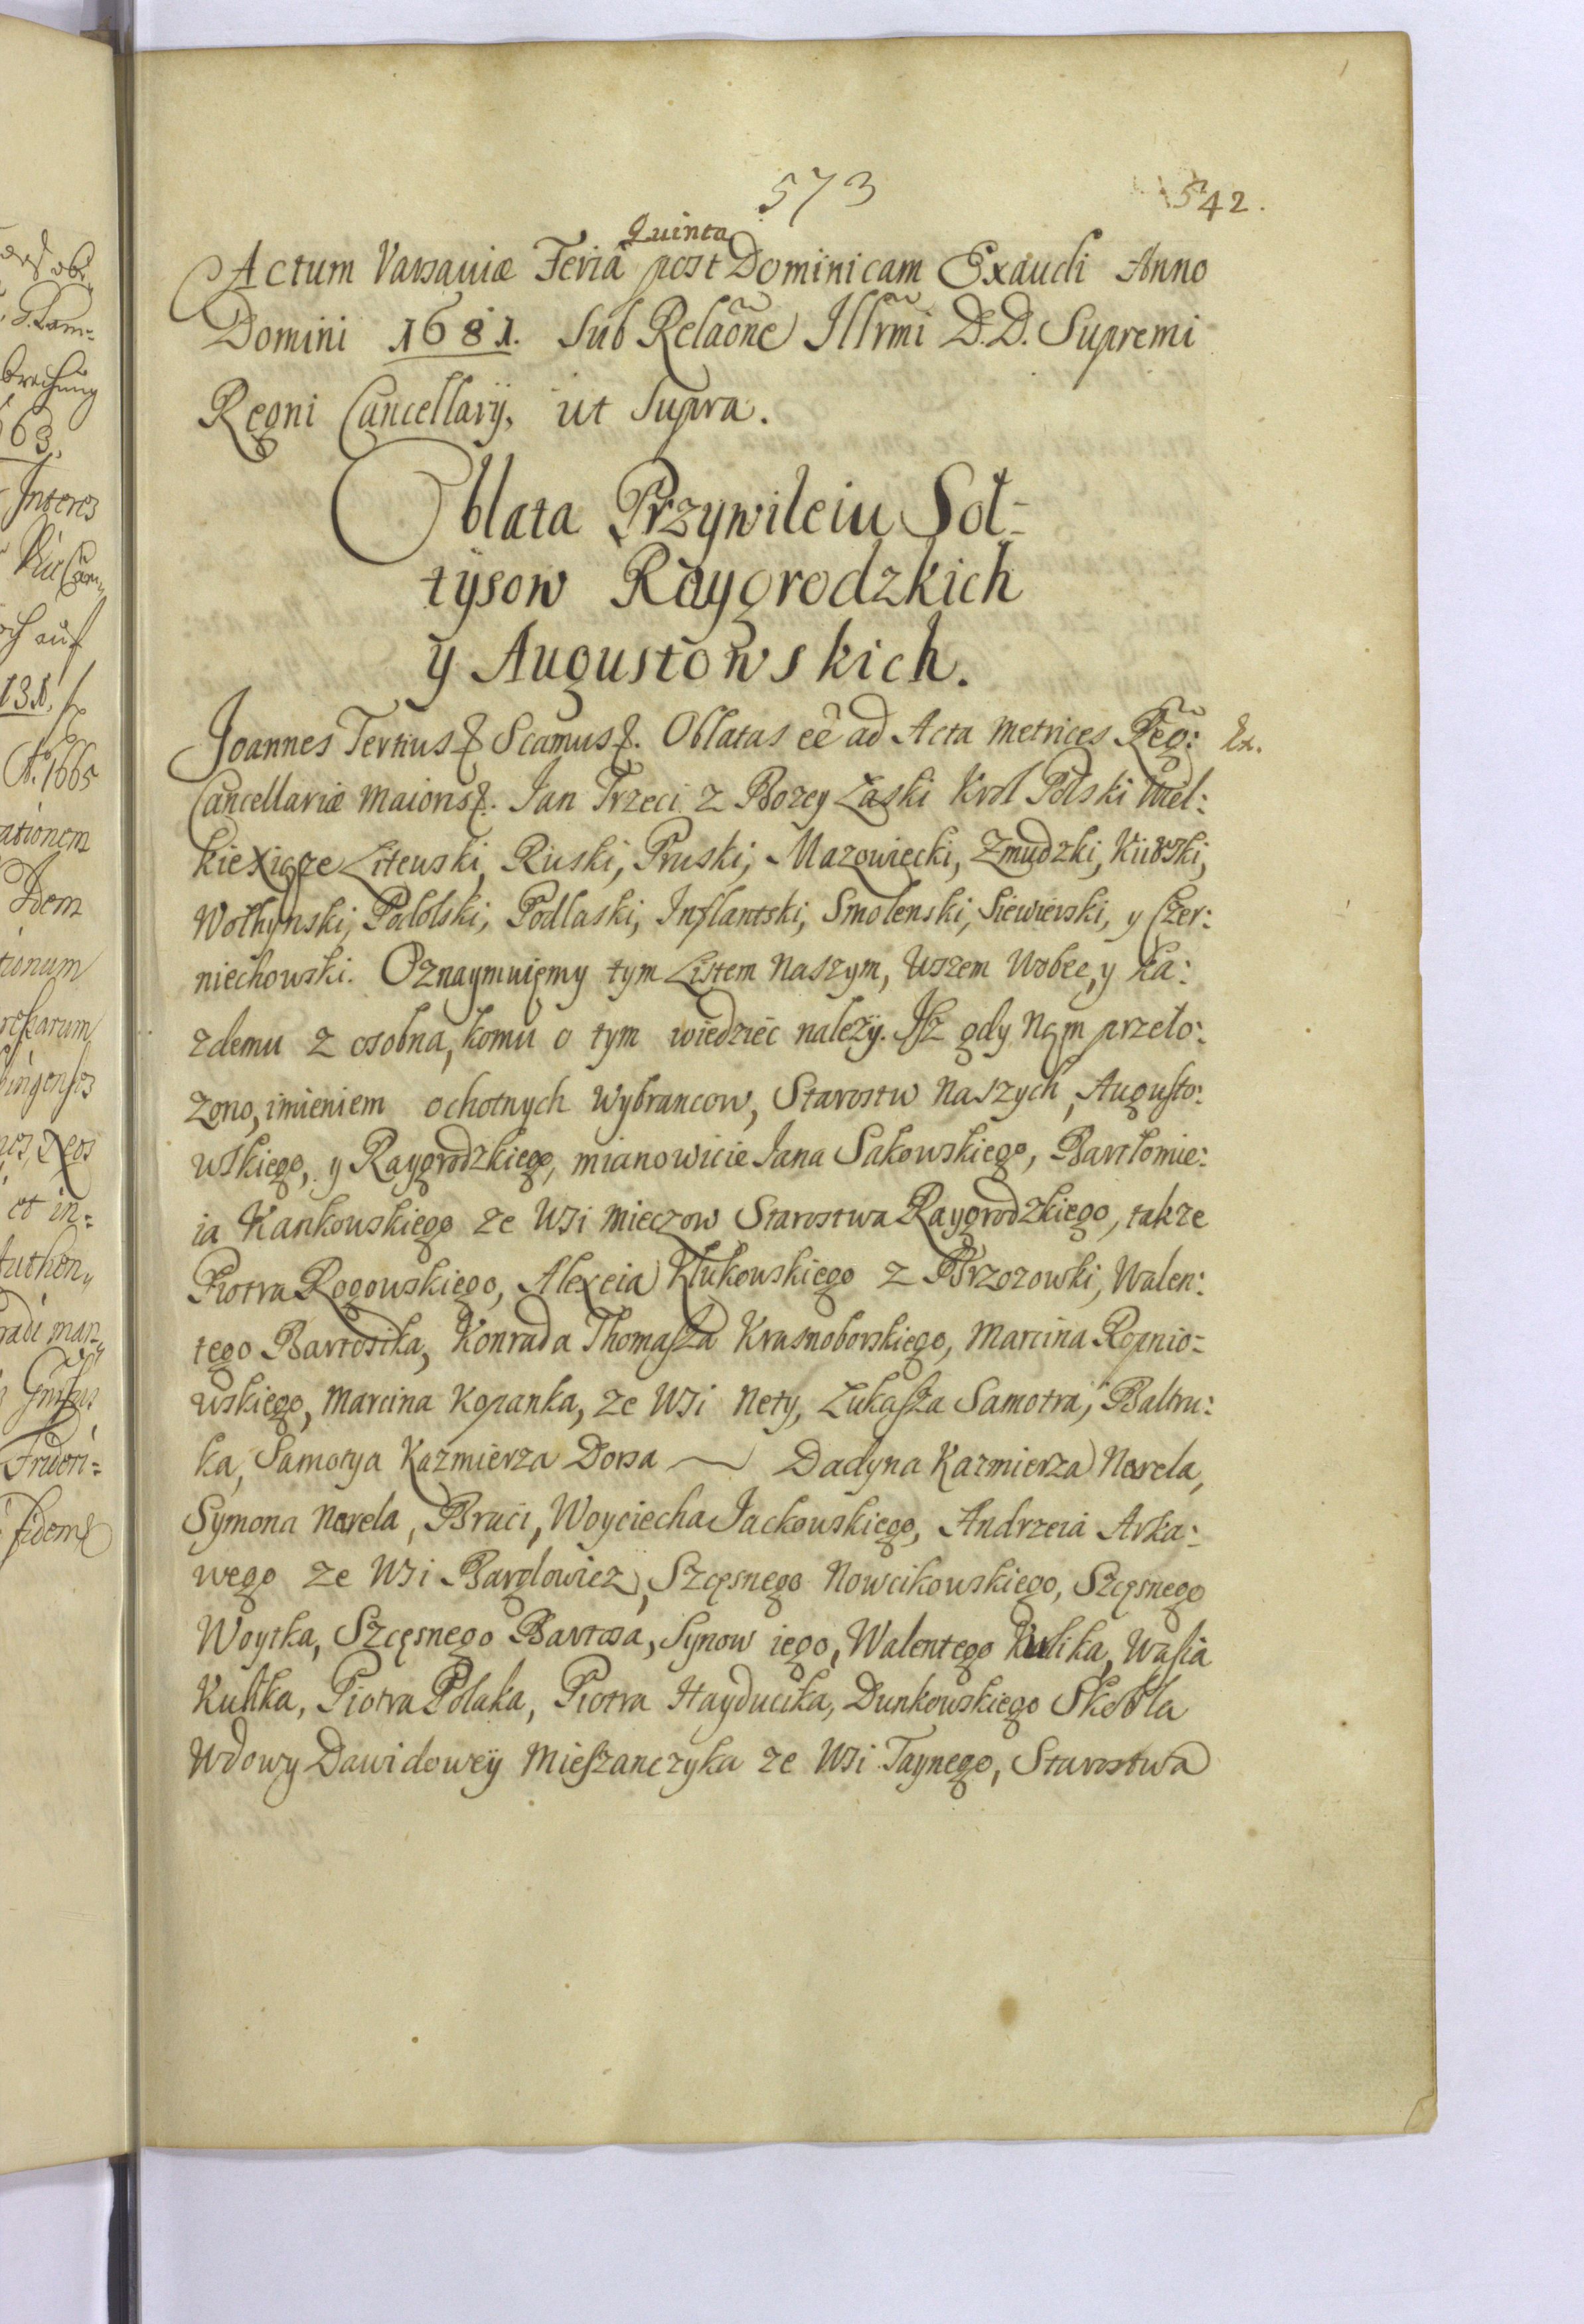 573
542.
Quinta
Actum Varsaviæ Feriâ post Dominicam Exaudi Anno
Domini 1681. Sub Relaõne Illrmi D.D. Supremi
Regni Cancellarij, ut Supra.
Oblata Przywileiu Soł-
tysow Raygrodzkich
y Augustowskich.
Joannes Tertius Scamus. Oblatas eê ad Acta Metrices Reg: Ex.
Cancellariæ Maioris. Jan Trzeci z Bozey Łaski Krol Polski Wiel:
kie Xiąze Litewski, Ruski, Pruski, Mazowiecki, Zmudzki, Kiiowski,
Wołhynski, Podolski, Podlaski, Inflantski, Smolenski, Siewierski, y Czer:
niechowski. Oznaymuięmy tym Listem Naszym, Wszem Wobec, y ka:
zdemu z osobna, komu o tym wiedzieć należy. Isz gdy Nąm przeło:
zono, imieniem ochotnych Wybrancow, Starostw Naszych, Augusto:
wskiego, y Raygrodzkiego, mianowicie Jana Sakowskiego, Bartłomie:
ia Kankowskiego ze Wsi Mieczow Starostwa Raygrodzkiego, takze
Piotra Rogowskiego, Alexeia Klukowskiego z Brzozowki, Walen:
tego Bartosika, Konrada Thomasza Krasnoborskiego, Marcina Ropnio-
wskiego, Marcina Kopanka, ze Wsi Nety, Łukasza Samotra, Baltru:
ka, Samotya Kazmierza Dorsa Dadyna Kazmierza Narela,
Symona Narela, Braci, Woyciecha Jackowskiego, Andrzeia Arka:
wego ze Wsi Barglowicz, Szczęsnego Nowcikowskiego, Szczęsnego
Woytka, Szczęsnego Bartosa, Synow iego, Walentego Kulika, Wasia
Kulika, Piotra Polaka, Piotra Hayducika, Dunkowskiego Skobla
Wdowy Dawidowey Mieszanczyka ze Wsi Taynego, Starostwa